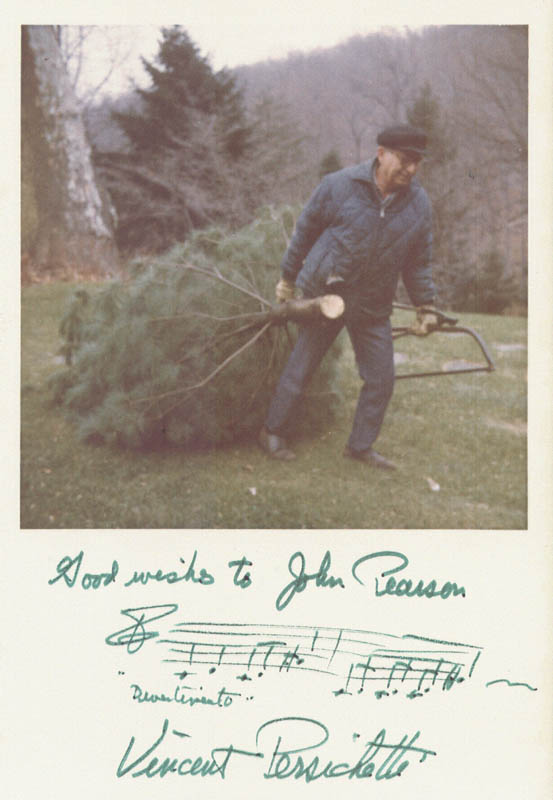 Good wishes to John Pearson
"Divertimento"
Vincent Persichetti